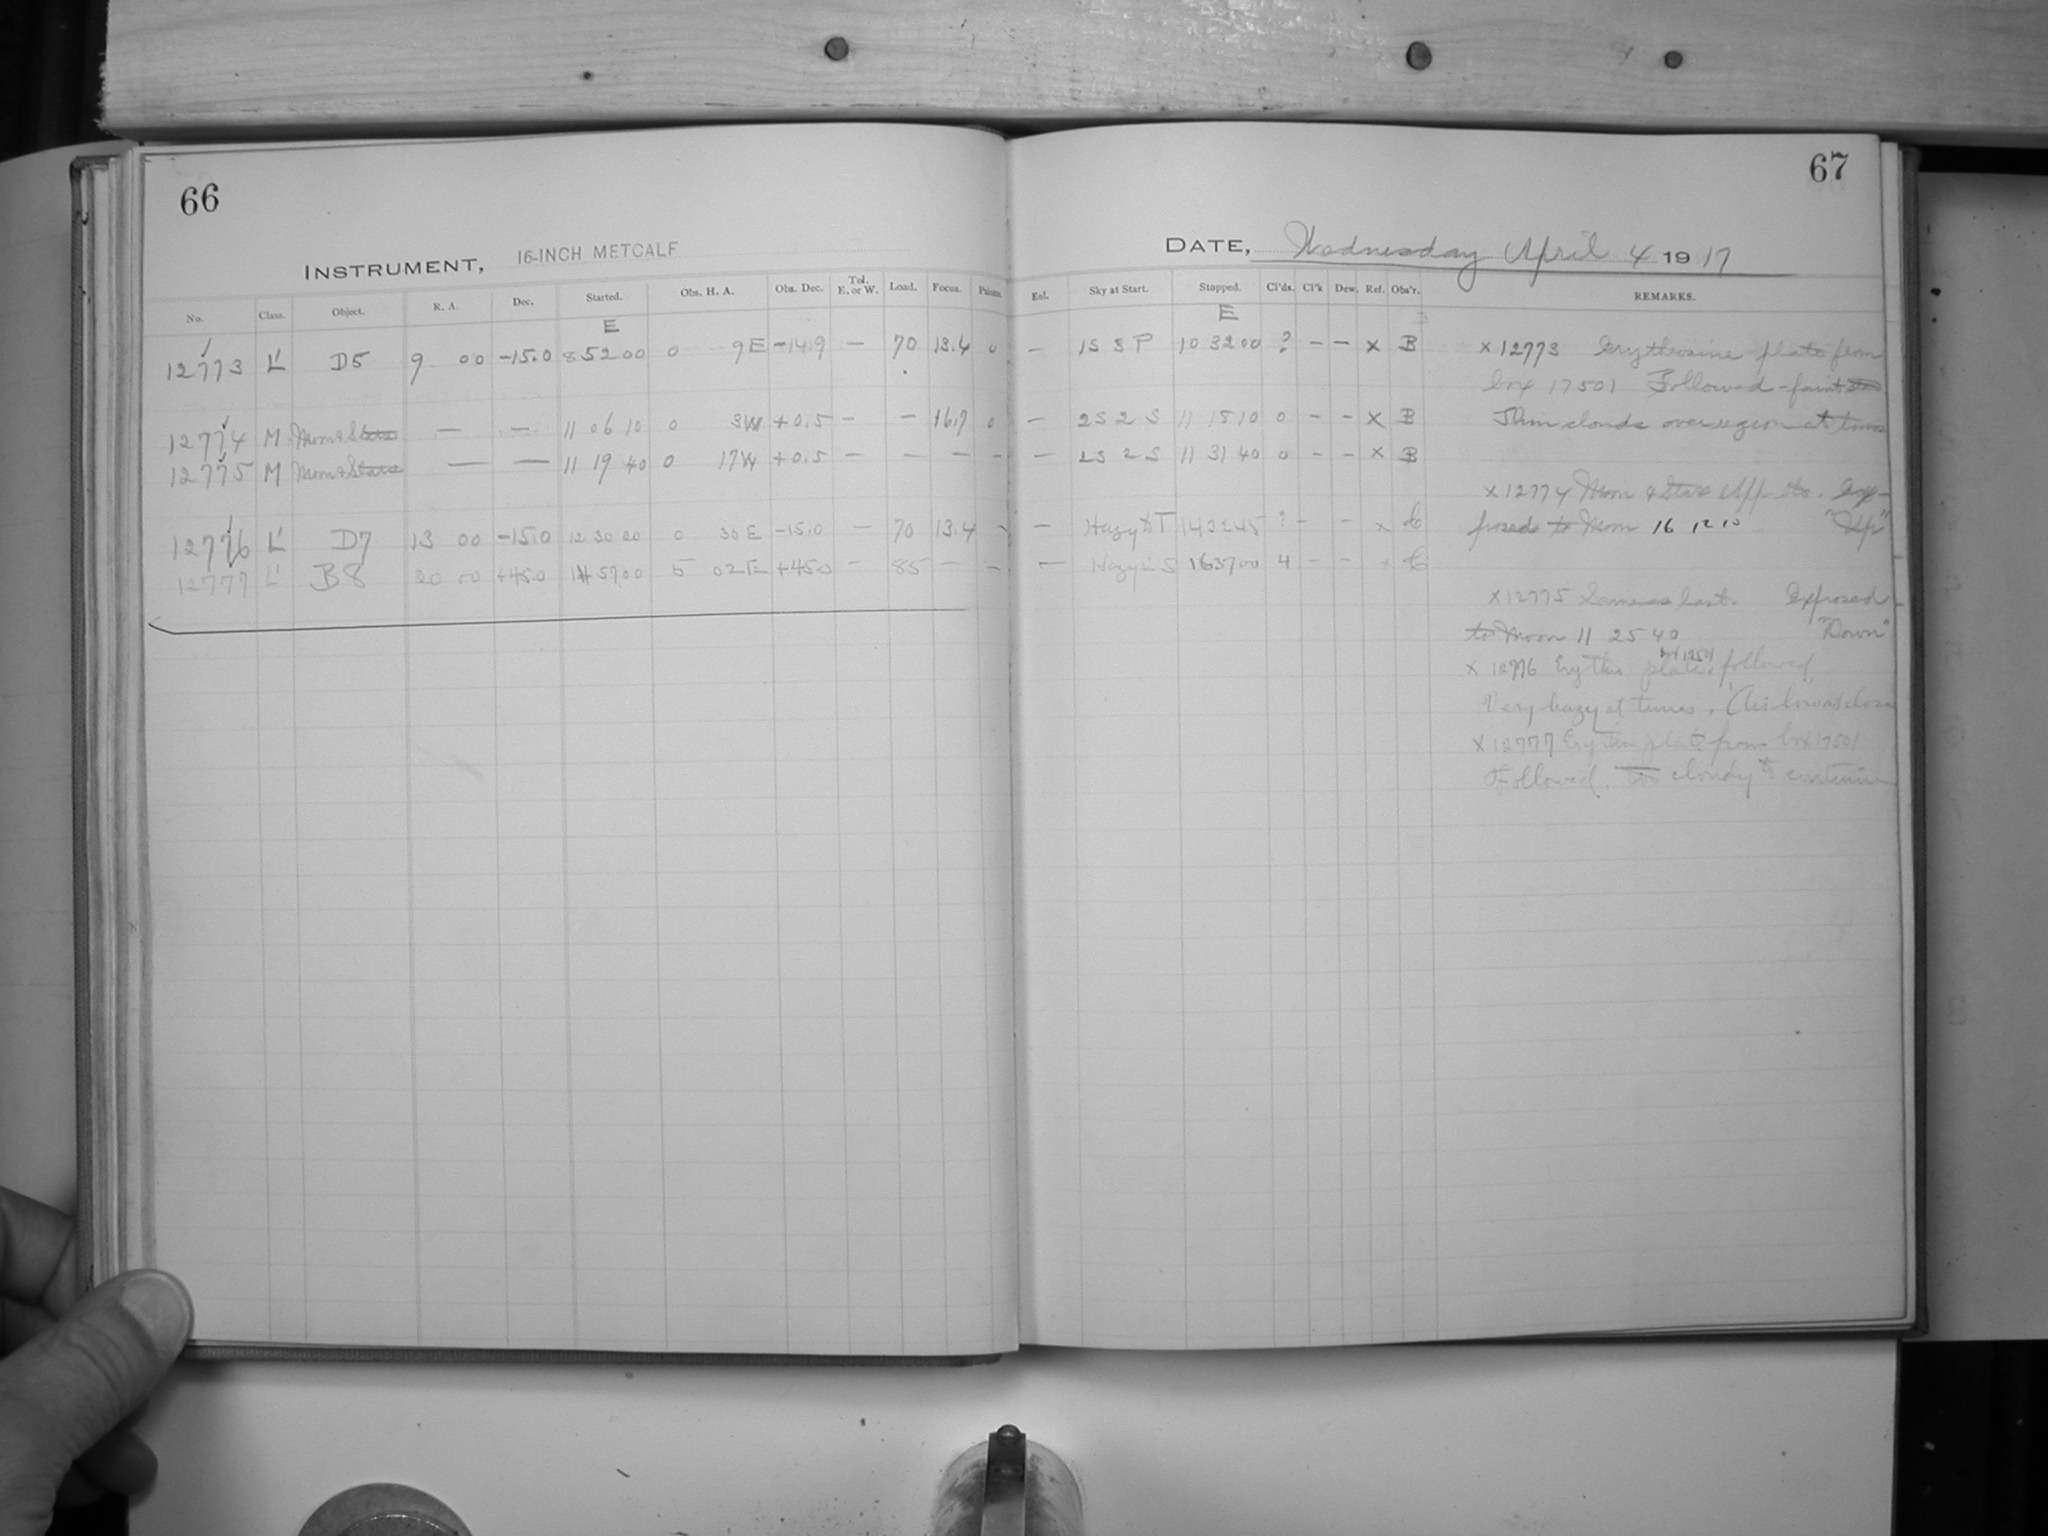 66
INSTRUMENT, 16-INCH METCALF
No. Class. Object. R. A. Dec. Started. Obs. H. A. Obs. Dec. Tel. E. or W. Load. Focus. Prisms.
E
12773 L' D5 9 00 -15.0 8 52 00 0 9 E -14.9 — 70 13.4 0
12774 M Moon & Stars — — 11 06 10 0 3W +0.5 — — 16.7 0
12775 M Moon & Stars — — 11 19 40 0 17W +0.5 — — — —
12776 L' D7 13 00 -15.0 12 30 20 0 30 E -15.0 — 70 13.4 —
12777 L' B8 20 00 +45.0 14 57 00 5 02 E +45.0 — 85 — —
67
DATE, Wednesday April 4 1917
Enl. Sky at Start. Stopped. Cl'ds. Cl'k Dew. Ref. Obs'r. REMARKS.
E
— 1S 3 P 10 32 00 ? — — x B
— 2S 2 S 11 18 10 0 — — x B
— 2S 2 S 11 31 40 0 — — x B
— Hazy T 14 02 45 ? — — x C
— Hazy S 16 37 00 4 — — x C
x 12773 Erythrosine plate from
box 17501 Followed - faint
Thin clouds over region at times
x 12774 Moon & Stars Ex-
posed to Moon 16 12 10 "Up"
x 12775 Same as last. Exposed
to Moon 11 25 40 "Down"
x 12776 Erythro plate followed
Very hazy at times.
x 12777 Erythro plate from box 17501
Followed. too cloudy to continue